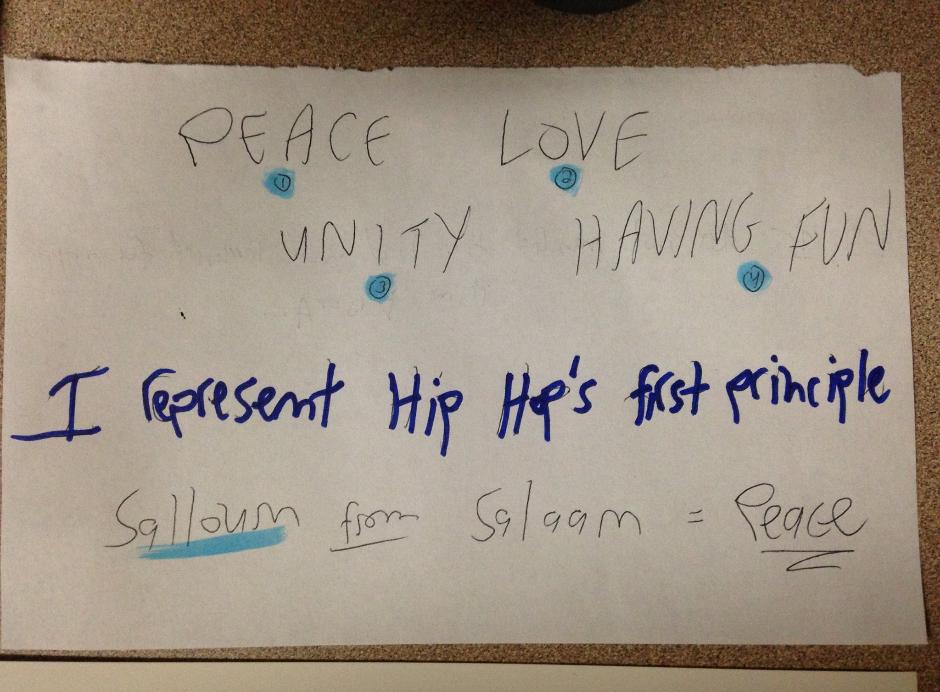 PEACE LOVE
1 2
UNITY HAVING FUN
3 4
I represent Hip Hop's first principle
Salloum from Salaam = Peace